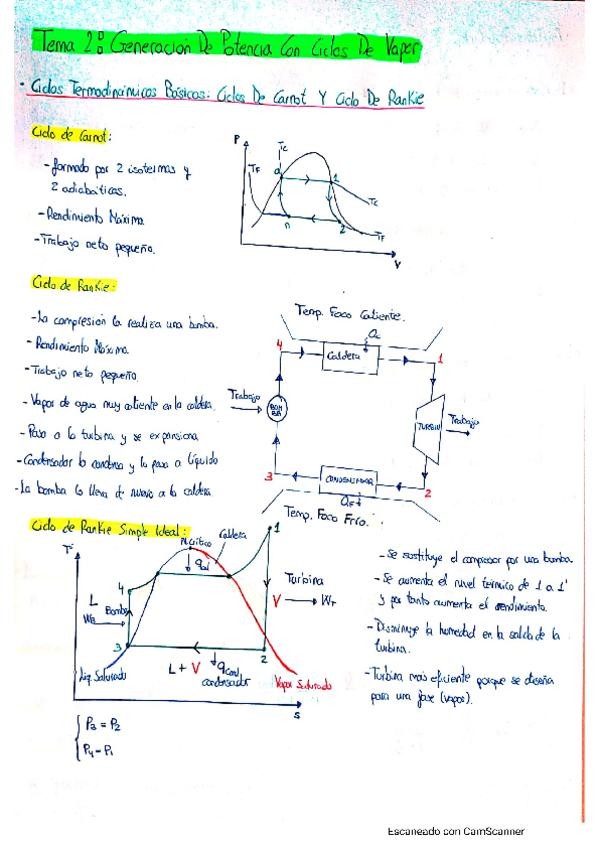 Tema 2: Generación De Potencia Con Ciclos De Vapor
· Ciclos Termodinámicos Básicos: Ciclos De Carnot Y Ciclo De Rankie
Ciclo de Carnot:
- formado por 2 isotermas y
2 adiabáticas.
- Rendimiento Máximo.
- Trabajo neto pequeño.
P
Tc
TF
a
1
Tc
n
2
TF
V
Ciclo de Rankie:
- La compresión la realiza una bomba.
- Rendimiento Máximo.
- Trabajo neto pequeño.
- Vapor de agua muy caliente en la caldera.
- Pasa a la turbina y se expansiona
- Condensador lo condensa y lo pasa a líquido
- La bomba lo lleva de nuevo a la caldera.
Temp. Foco Caliente.
Qc
4
Caldera
1
Trabajo
BOMBA
TURBIN
Trabajo
3
CONDENSADOR
2
QF
Temp. Foco Frío.
Ciclo de Rankie Simple Ideal:
T
P. Crítico
Caldera
1
qal
4
L
Bomba
WB
Turbina
V
WT
3
2
L + V
qcond
condensador
Liq. Saturado
Vapor Saturado
S
P3 = P2
P4 = P1
- Se sustituye el compresor por una bomba.
- Se aumenta el nivel térmico de 1 a 1'
y por tanto aumenta el rendimiento.
- Disminuye la humedad en la salida de la
turbina.
- Turbina más eficiente porque se diseña
para una fase (vapor).
Escaneado con CamScanner